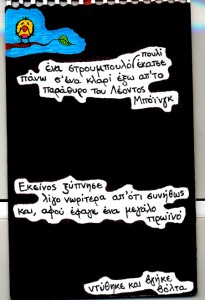 πουλί
ένα στρουμπουλό έκατσε
πάνω σ'ένα κλαρί έξω απ'το
παράθυρο του Λέοντος
Μπόινγκ
Εκείνος ξύπνησε
λίγο νωρίτερα απ'ότι συνήθως
και, αφού έφαγε ένα μεγάλο
πρωϊνό
ντύθηκε και βγήκε
βόλτα